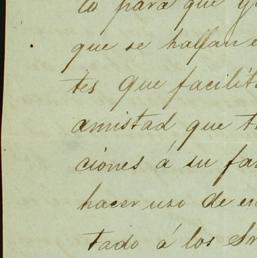 to para que
que se hallan
tes que facilit
amistad que t
ciones á su fa
hacer uso de en
tado á los Sr